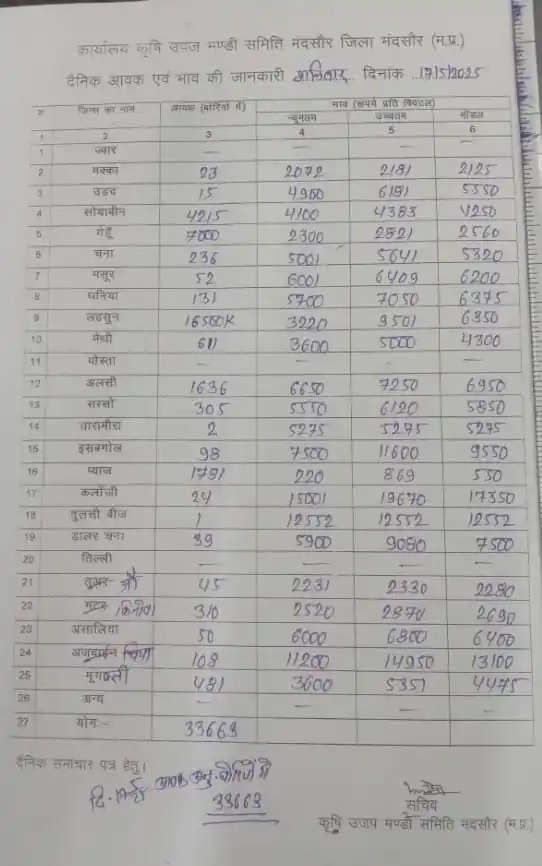 कार्यालय कृषि उपज मण्डी समिति मंदसौर जिला मंदसौर (म.प्र.)
दैनिक आवक एवं भाव की जानकारी शनिवार.. दिनांक ..17/5/2025
जिन्स का नाम आवक (बोरियों में) भाव (रूपये प्रति क्विंटल)
न्यूनतम उच्चतम मॉडल
1 2 3 4 5 6
1 ज्वार — — — —
2 मक्का 23 2072 2181 2125
3 उड़द 15 4980 6191 5550
4 सोयाबीन 4215 4100 4383 4250
5 गेहूँ 7000 2300 2821 2560
6 चना 236 5001 5641 5320
7 मसूर 52 6001 6409 6200
8 धनिया 131 5700 7050 6375
9 लहसुन 16560K 3220 9501 6350
10 मेथी 611 3600 5000 4300
11 पोस्ता — — — —
12 अलसी 1636 6650 7250 6950
13 सरसो 305 5550 6120 5850
14 तारामीरा 2 5275 5275 5275
15 इसबगोल 98 7500 11600 9550
16 प्याज 1791 220 869 550
17 कलौंजी 24 15001 19670 17350
18 तुलसी बीज 1 12552 12552 12552
19 डालर चना 39 5900 9080 7500
20 तिल्ली — — — —
21 तुअर जौ 45 2231 2330 2280
22 मटर 310 2520 2870 2690
23 असालिया 50 6000 6800 6400
24 अजवाईन चिया 108 11200 14950 13100
25 मूंगफली 481 3600 5351 4475
26 अन्य — — — —
27 योग:- 33663
दैनिक समाचार पत्र हेतु।
आवक
33663
सचिव
कृषि उपज मण्डी समिति मंदसौर (म.प्र.)